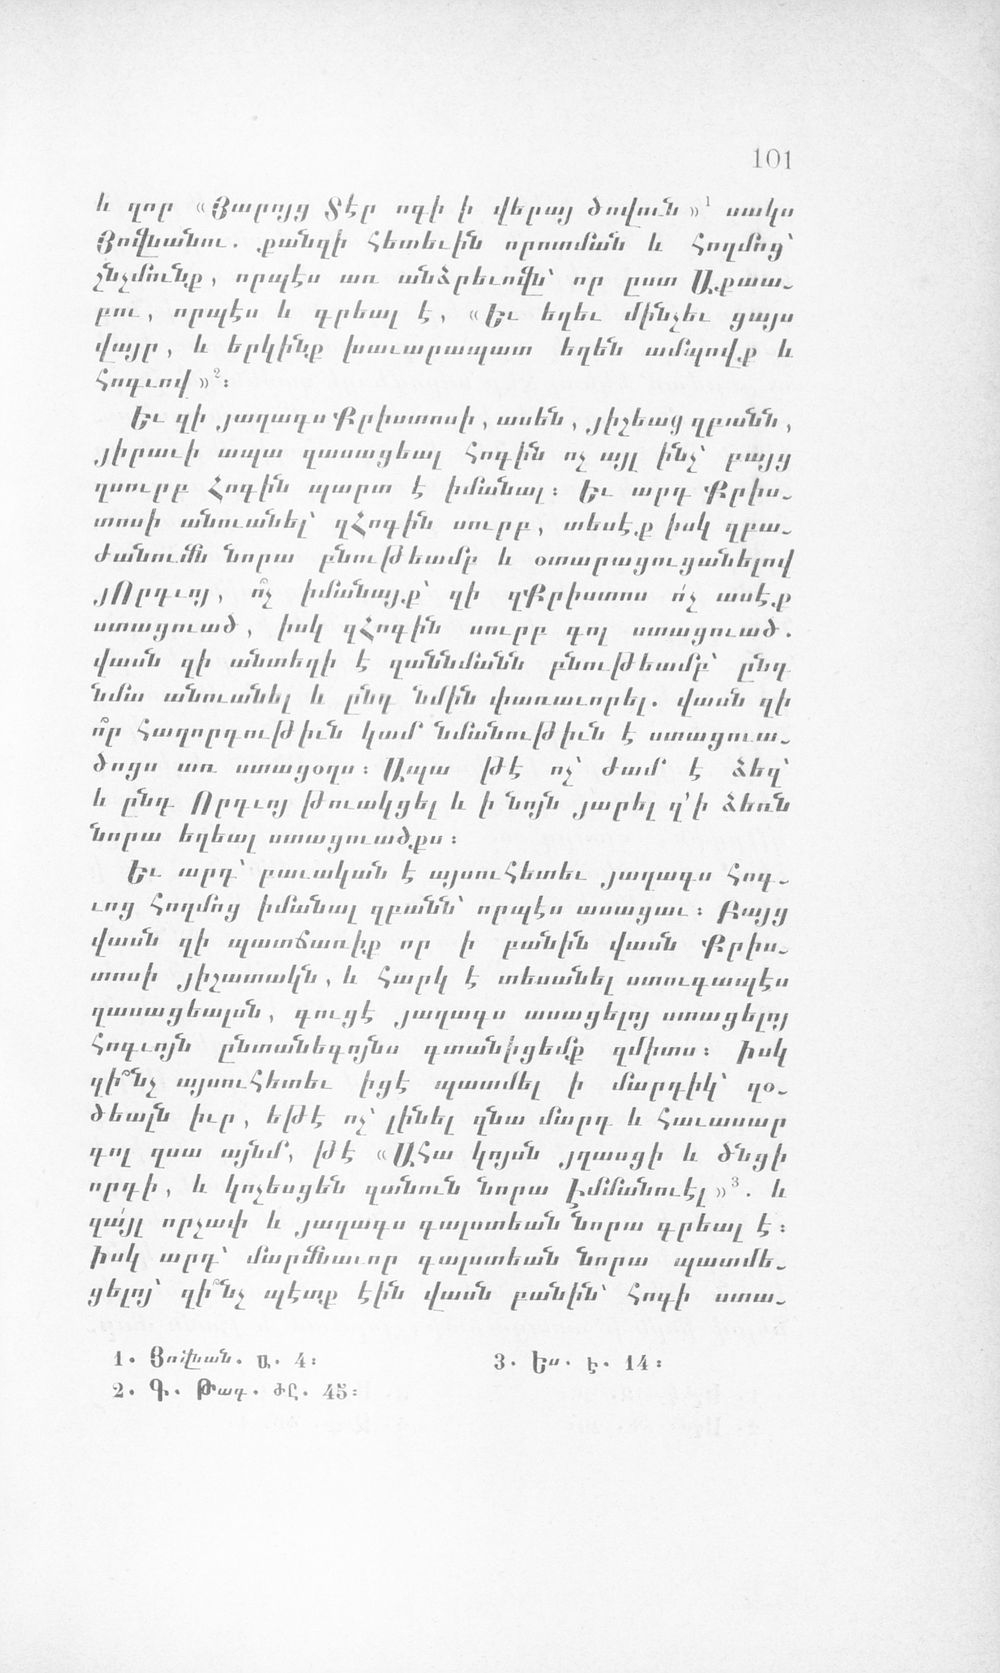 101
և զոր «Յարոյց Տէր ոգի ի վերայ ծովուն»1 սակս
Յովնանու. քանզի հետեւին որոտման և հողմոց՝
շնչմունք, որպէս առ անձրեւովն՝ որ ըստ Աքաա֊
բու, որպէս և գրեալ է, «Եւ եղեւ մինչեւ ցայս
վայր, և երկինք խաւարապատ եղեն ամպովք և
հոգւով»2։
Եւ զի յաղագս Քրիստոսի, ասեն, յիշեաց զբանն,
յիրաւի ապա զասացեալ հոգին ոչ այլ ինչ՝ բայց
զսուրբ Հոգին պարտ է իմանալ։ Եւ արդ Քրիս֊
տոսի անուանել՝ զՀոգին սուրբ, տեսէք իսկ զբա֊
ժանումն նորա բնութեամբ և օտարացուցանելով
յՈրդւոյ, ո՞չ իմանայք՝ զի զՔրիստոս ո՛չ ասէք
ստացուած, իսկ զՀոգին սուրբ գոլ ստացուած.
վասն զի անտեղի է զաննմանն բնութեամբ՝ ընդ
նմա անուանել և ընդ նմին փառաւորել. վասն զի
ո՞ր հաղորդութիւն կամ նմանութիւն է ստացուա֊
ծոցս առ ստացօղս։ Ապա թէ ոչ՝ ժամ է ձեզ՝
և ընդ Որդւոյ թուակցել և ի նոյն յարել զ՚ի ձեռն
նորա եղեալ ստացուածքս։
Եւ արդ՝ բաւական է այսուհետեւ յաղագս հոգ֊
ւոց հողմոց իմանալ զբանն՝ որպէս ասացաւ։ Բայց
վասն զի պատճառիք որ ի բանին վասն Քրիս֊
տոսի յիշատակն, և հարկ է տեսանել ստուգապէս
զասացեալսն, գուցէ յաղագս ասացելոյ ստացելոյ
հոգւոյն ընտանեգոյնս գտանիցեմք զմիտս։ Իսկ
զի՞նչ այսուհետեւ իցէ պատմել ի մարդիկ՝ զօ֊
ծեալն իւր, եթէ ոչ՝ լինել զնա մարդ և հաւասար
գոլ զսա այնմ, թէ «Ահա կոյսն յղասցի և ծնցի
որդի, և կոչեսցեն զանուն նորա Էմմանուէլ»3. և
զա՛յլ որչափ և յաղագս գալստեան նորա գրեալ է։
Իսկ արդ՝ մարմնաւոր գալստեան նորա պատմե֊
ցելոյ՝ զի՞նչ պէտք էին վասն բանին՝ հոգի ստա֊
1. Յովնան. Ա. 4։
2. Գ. Թագ. ԺԸ. 45։
3. Ես. Է. 14։